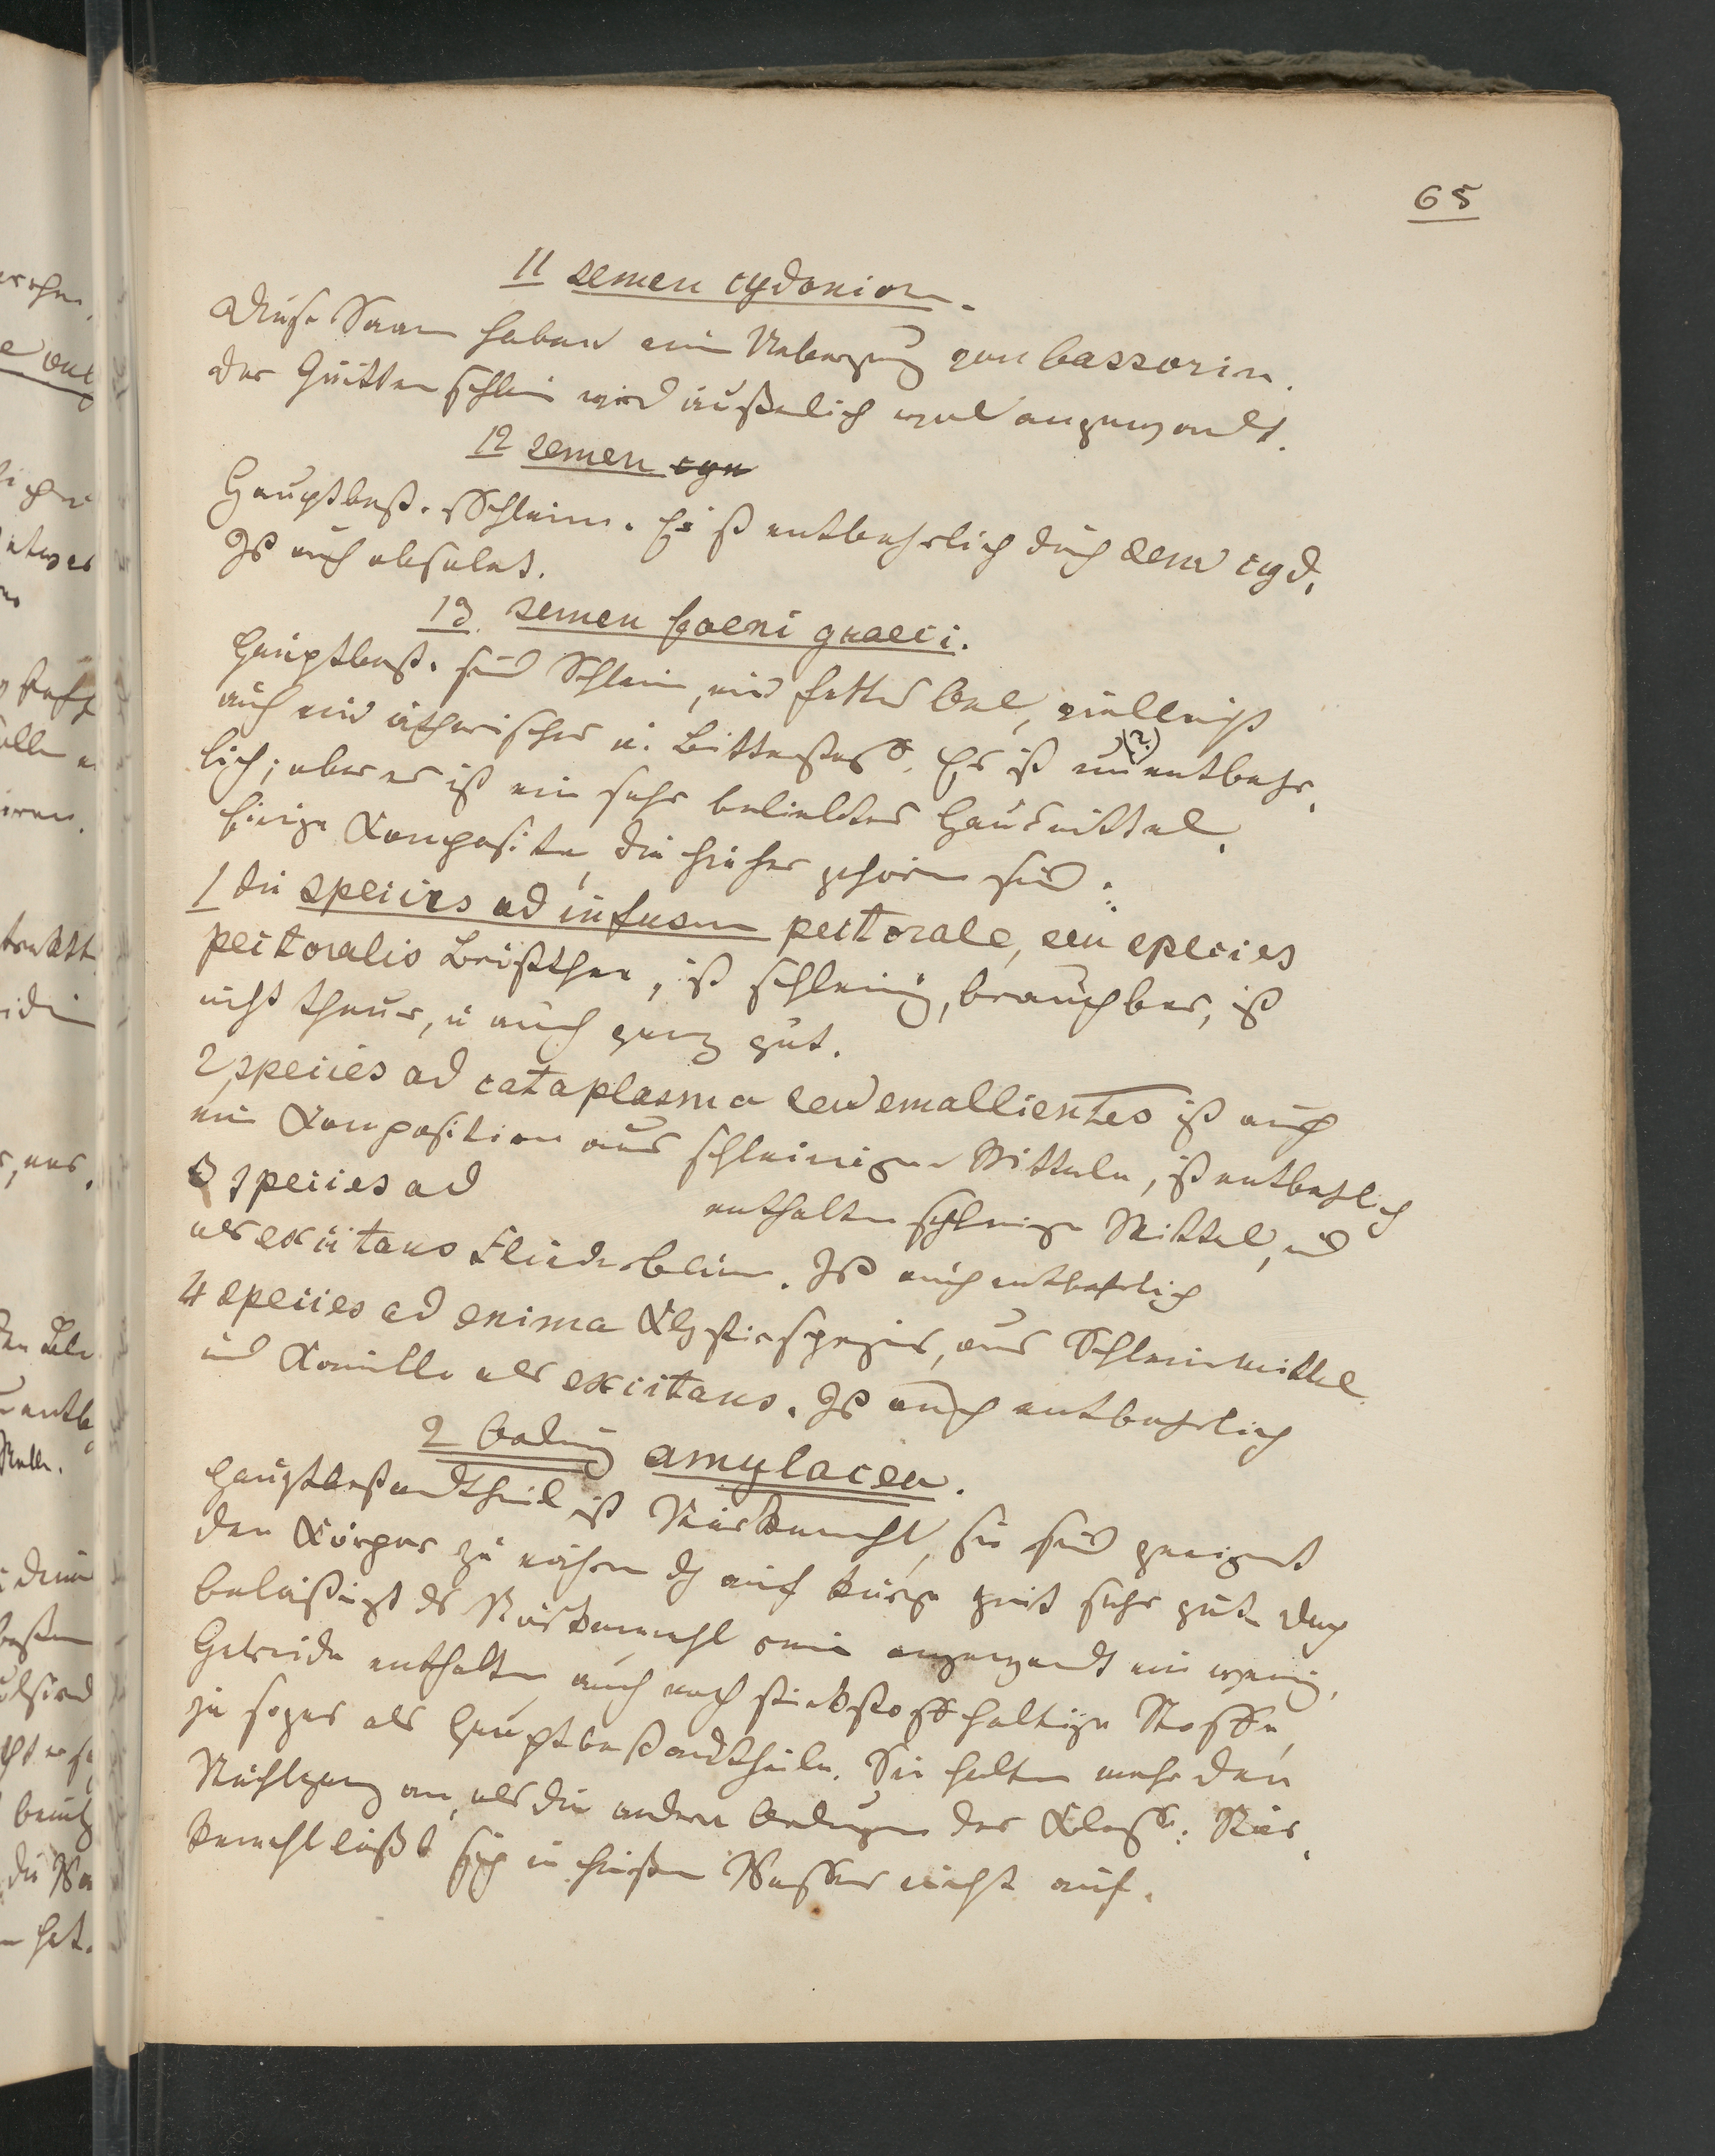 65
11 semen cydonior.
Diese Saam haben ein Ueberzug von bassorin.
Der Quitten schleim wird äußerlich viel angewandt.
12 semen cyn
Hauptbest. Schleim. Er ist entbehrlich durch sem cyd.
Ist auch obsolet.
13. semen foeni graeci.
Hauptbest. sind Schleim, ein fettes Oel, vielleicht
auch ein ätherisches u. Bitterstoff. Es ist un(?)entbehr-
lich; aber es ist ein sehr beliebtes Hausmittel.
Einige Komposita, die hieher gehören sind:
1 die species ad infusum pectorale, seu species
pectoralis Brustthee, ist schleimig, brauchbar, ist
nicht theuer, u auch ganz gut.
2 species ad cataplasma seu emollientes ist auch
ein Komposition aus schleimigen Mitteln, ist entbehrlich
3 species ad enthalten schleimige Mittel, und
als excitans Fliederblum. Ist auch entbehrlich
4 species ad enima Klystirspezies, aus Schleimmittel
und Kamille als excitans. Ist auch entbehrlich
2 Ordnung amylacea.
Hauptbestandtheil ist Stärkemehl, sie sind geeignet
den Körper zu nähren doch auf kurze Zeit sehr gute. Doch
belästigt das Stärkemehl rein angewandt ein wenig.
Getreide enthalten auch noch stickstoffhaltige Stoffe,
ja sogar als Hauptbestandtheile. Sie halten mehr den
Stuhlgang an, als die andern Ordnungen der Klasse. Stär-
kemehl läßt sich in heißem Wasser nicht auf.